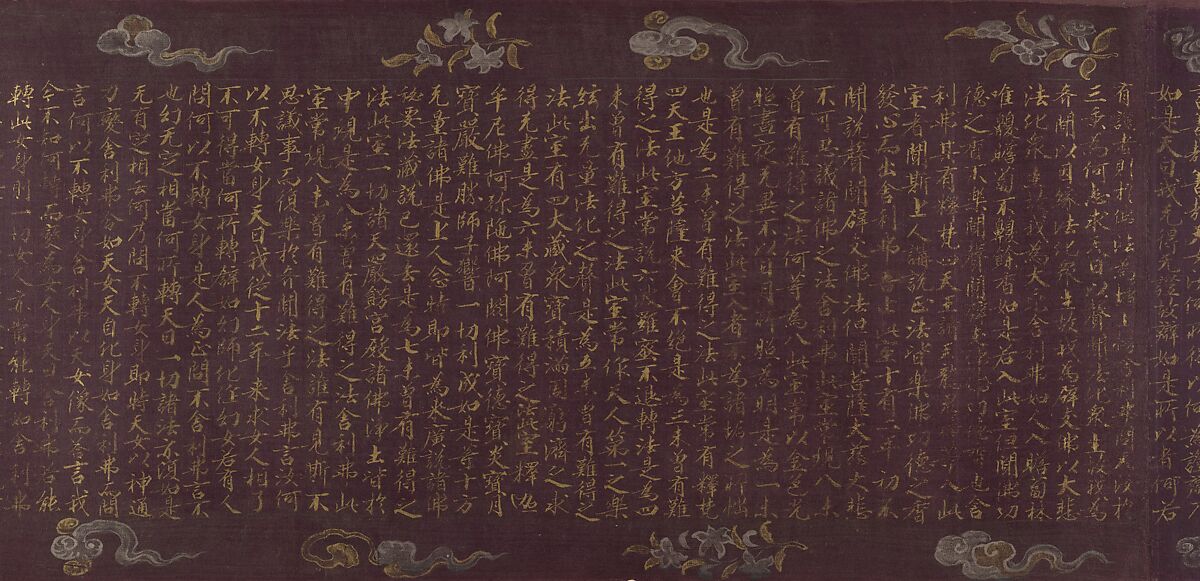 如是天曰我无得无證故辯如是所以者何若
有證者則於佛法為增上慢舍利弗問天汝於
三乘為何志求天曰以聲聞法化眾生故我為
聲聞以因緣法化眾生故我為辟支佛以大悲
法化眾生故我為大乘舍利弗如人入瞻蔔林
唯嗅瞻蔔不嗅餘香如是若入此室但聞佛功
德之香不樂聞聲聞辟支佛功德香也舍
利弗其有釋梵四天王諸天龍鬼神等入此
室者聞斯上人講說正法皆樂佛功德之香
發心而出舍利弗吾止此室十有二年初不
聞說聲聞辟支佛法但聞菩薩大慈大悲
不可思議諸佛之法舍利弗此室常現八未
曾有難得之法何等為八此室常以金色光
照晝夜无異不以日月所照為明是為一未
曾有難得之法此室入者不為諸垢之所惱
也是為二未曾有難得之法此室常有釋梵
四天王他方菩薩來會不絕是為三未曾有難
得之法此室常說六波羅蜜不退轉法是為四
未曾有難得之法此室常作天人第一之樂
絃出无量法化之聲是為五未曾有難得之
法此室有四大藏眾寶積滿周窮濟乏求
得无盡是為六未曾有難得之法此室釋迦
牟尼佛阿弥陀佛阿閦佛寶德寶炎寶月
寶嚴難勝師子響一切利成如是等十方
无量諸佛是上人念時即皆為來廣說諸佛
祕要法藏說已還去是為七未曾有難得之
法此室一切諸天嚴飾宮殿諸佛淨土皆於
中現是為八未曾有難得之法舍利弗此
室常現八未曾有難得之法誰有見斯不
思議事而復樂於聲聞法乎舍利弗言汝何
以不轉女身天曰我從十二年來求女人相了
不可得當何所轉譬如幻師化作幻女若有人
問何以不轉女身是人為正問不舍利弗言不
也幻无定相當何所轉天曰一切諸法亦復如是
无有定相云何乃問不轉女身即時天女以神通
力變舍利弗令如天女天自化身如舍利弗而問
言何以不轉女身舍利弗以天女像而答言我
今不知何轉而變為女人身天曰舍利弗若能
轉此女身則一切女人亦當能轉如舍利弗